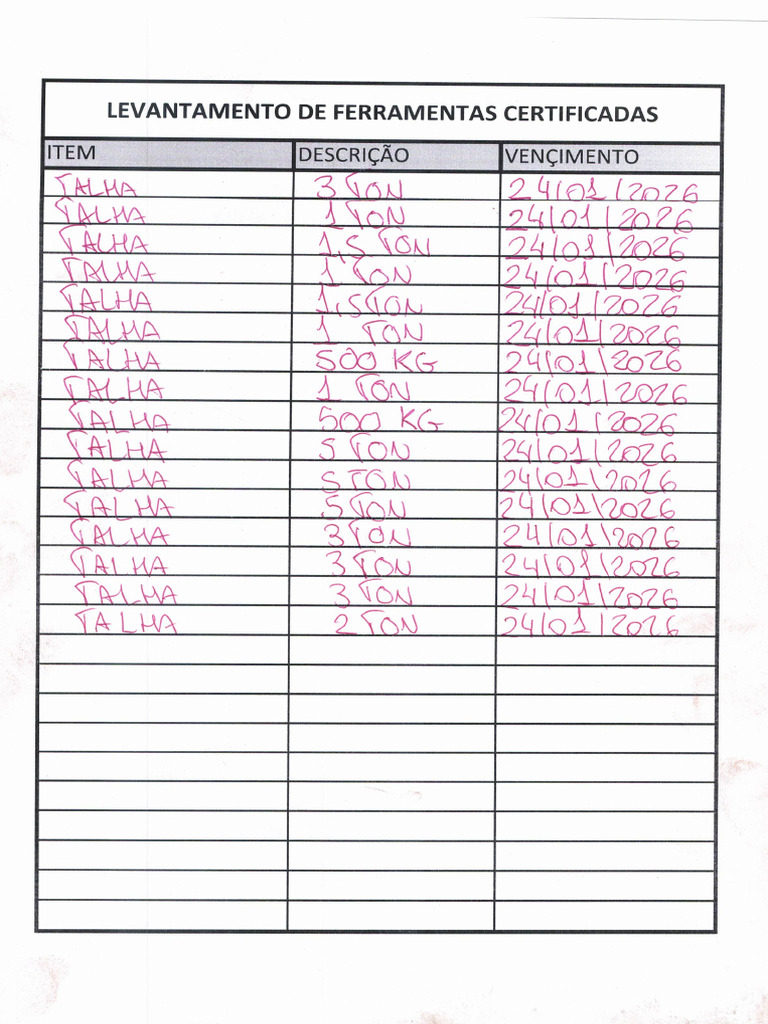 LEVANTAMENTO DE FERRAMENTAS CERTIFICADAS
ITEM DESCRIÇÃO VENÇIMENTO
TALHA 3 TON 24/01/2026
TALHA 1 TON 24/01/2026
TALHA 1,5 TON 24/01/2026
TALHA 1 TON 24/01/2026
TALHA 1,5 TON 24/01/2026
TALHA 1 TON 24/01/2026
TALHA 500 KG 24/01/2026
TALHA 1 TON 24/01/2026
TALHA 500 KG 24/01/2026
TALHA 5 TON 24/01/2026
TALHA 5 TON 24/01/2026
TALHA 5 TON 24/01/2026
TALHA 3 TON 24/01/2026
TALHA 3 TON 24/01/2026
TALHA 3 TON 24/01/2026
TALHA 2 TON 24/01/2026